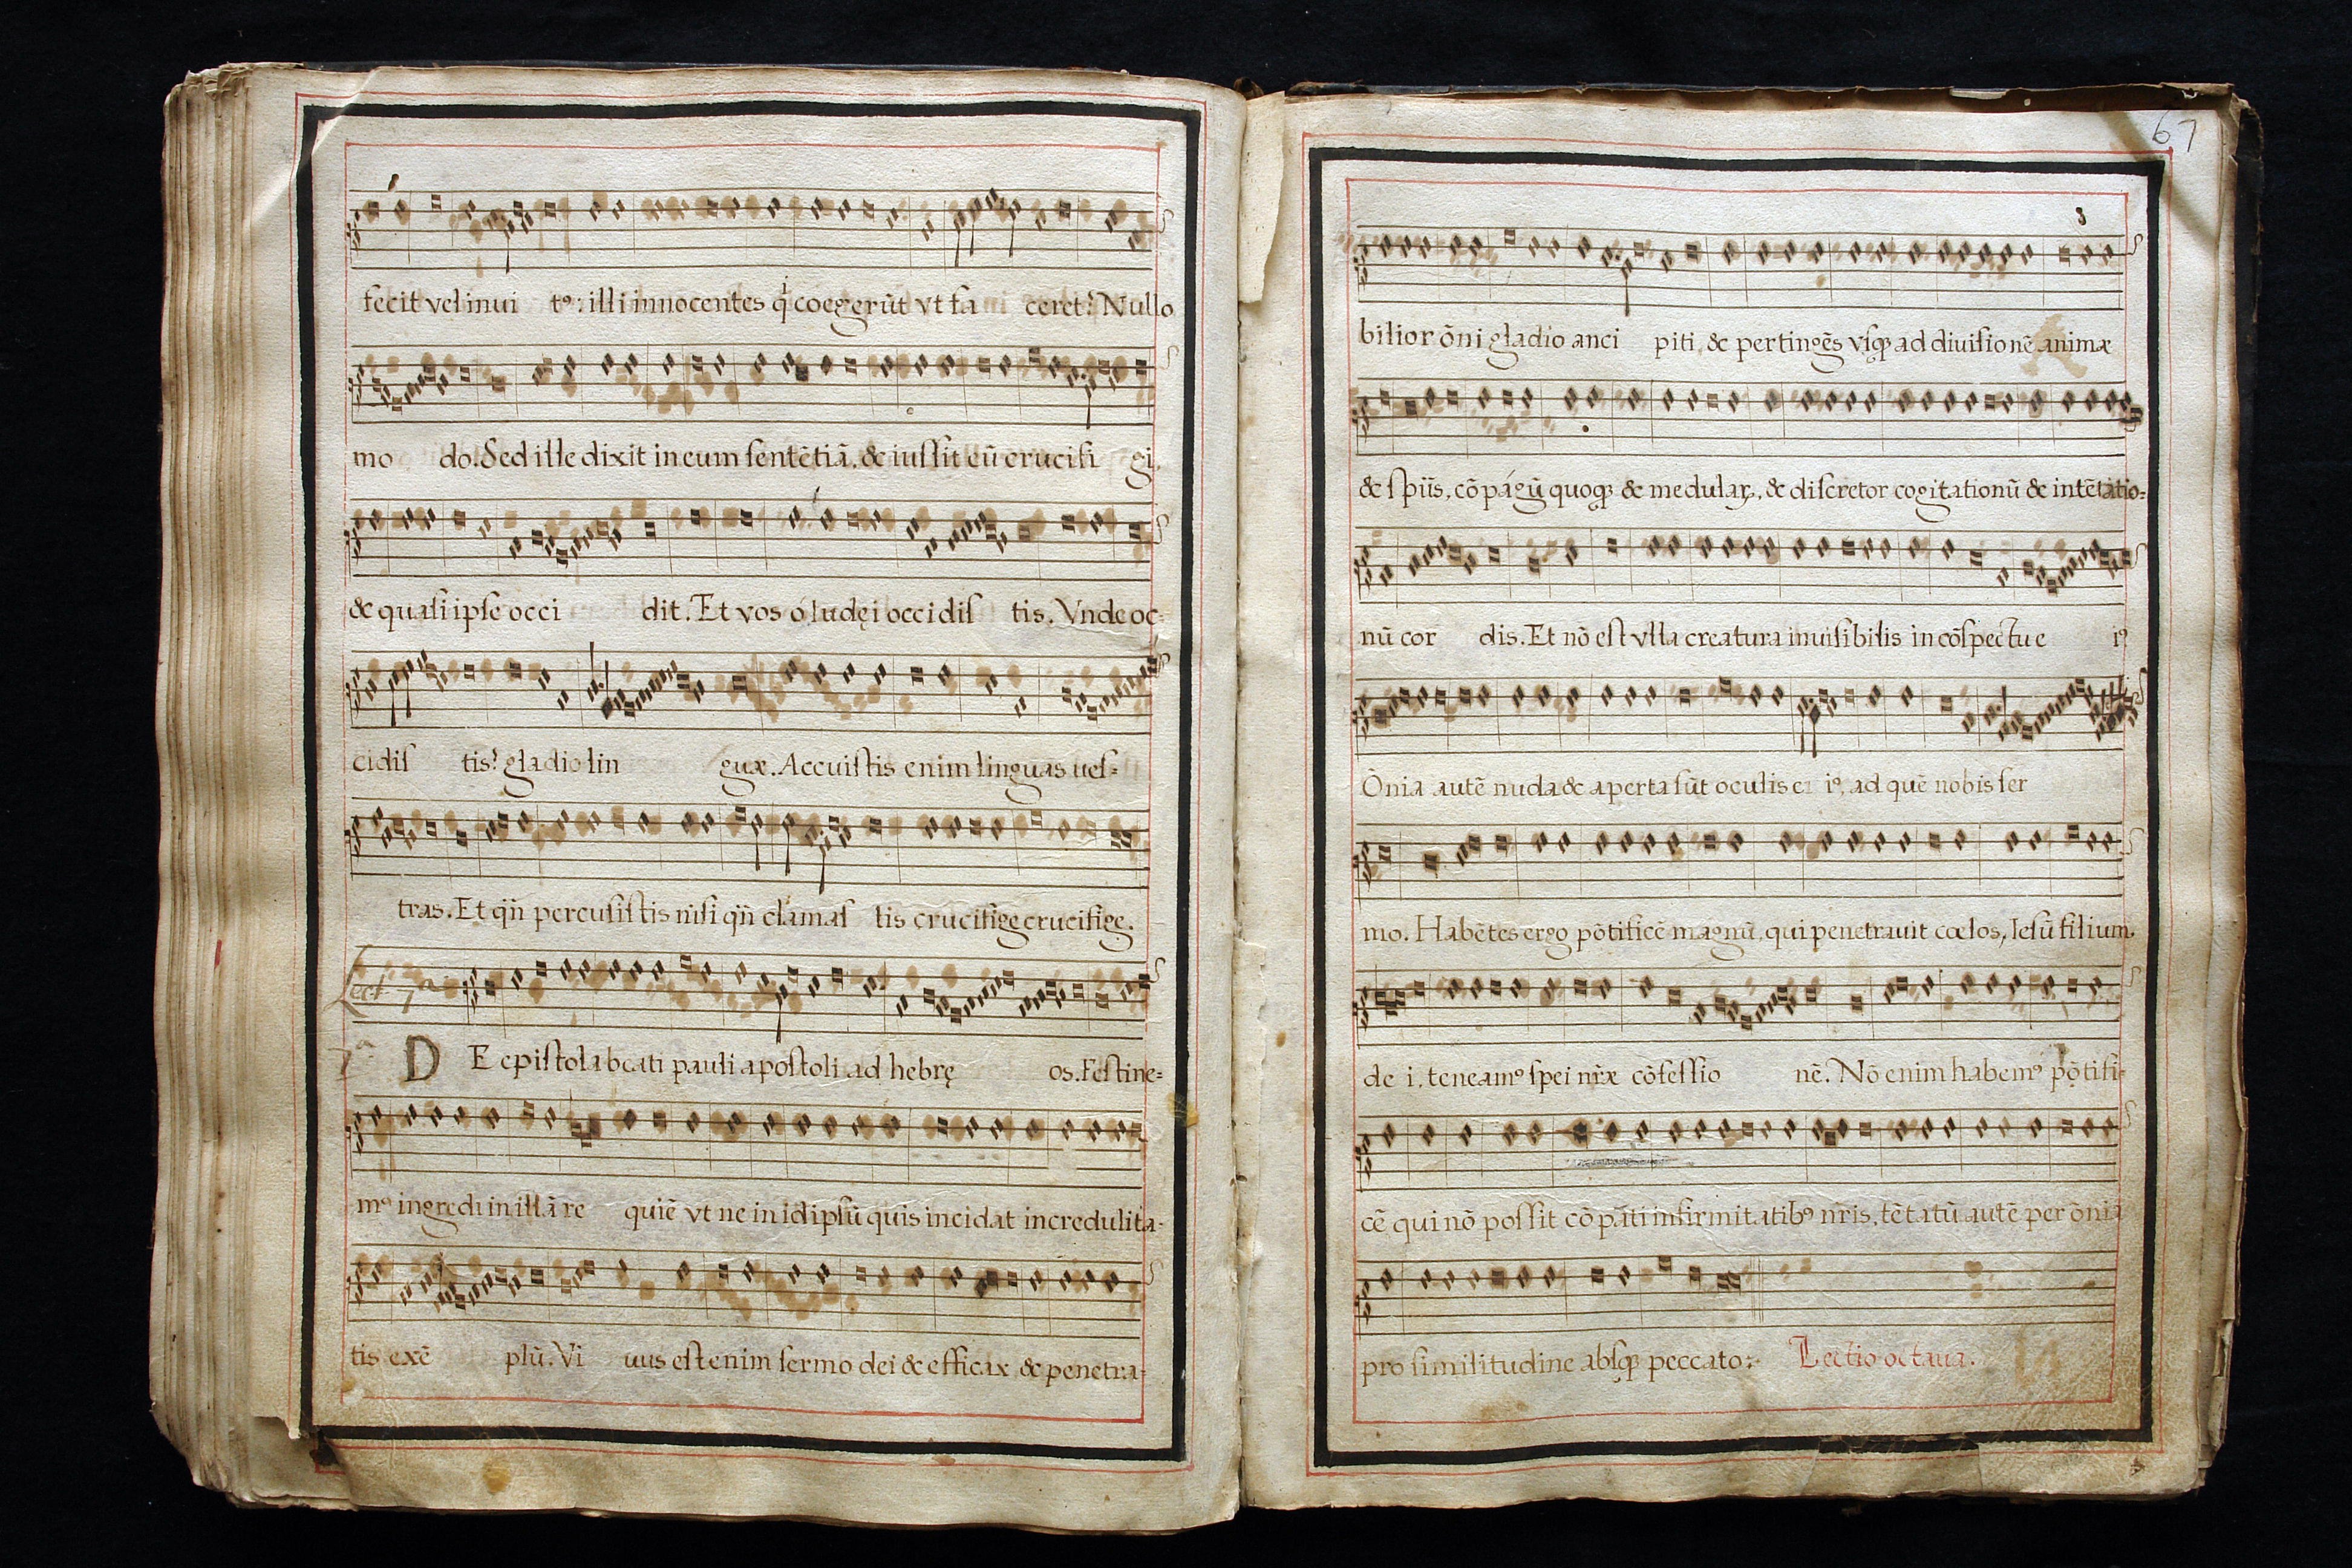 fecit vel inui tꝰ: illi innocentes q̃ coegerũt vt fa ceret? Nullo
mo do. Sed ille dixit in eum sentẽtiã, & iussit eũ crucifi gi,
& quasi ipse occi dit. Et vos ó Iudęi occidis tis. Vnde oc-
cidis tis? gladio lin guæ. Accuistis enim linguas ues-
tras. Et qñ percusistis nisi qñ clamas tis crucifige crucifige.
Lect 7ª
7ª DE epistola beati pauli apostoli ad hebrę os. Festine-
mꝰ ingredi in illã re quiẽ vt ne in idipsũ quis incidat incredulita-
tis exẽ plũ. Vi uus est enim sermo dei & efficax & penetra-
67
3
bilior õni gladio anci piti, & pertingẽs vsqꝫ ad diuisionẽ animæ
& spũs, cõpágũ quoqꝫ & medulaꝝ, & discretor cogitationũ & intẽtatio-
nũ cor dis. Et nõ est vlla creatura inuisibilis in cõspectu e iꝰ
Õnia autẽ nuda & aperta sũt oculis ei iꝰ, ad quẽ nobis ser
mo. Habẽtes ergo põtificẽ magnũ, qui penetrauit cœlos, Iesũ filium
de i. teneamꝰ spei nr̃æ cõfessio nẽ. Nõ enim habemꝰ põtifi-
cẽ qui nõ possit cõpati infirmitatibꝰ nr̃is, tẽtatũ autẽ per õnia
pro similitudine absqꝫ peccato: Lectio octaua.